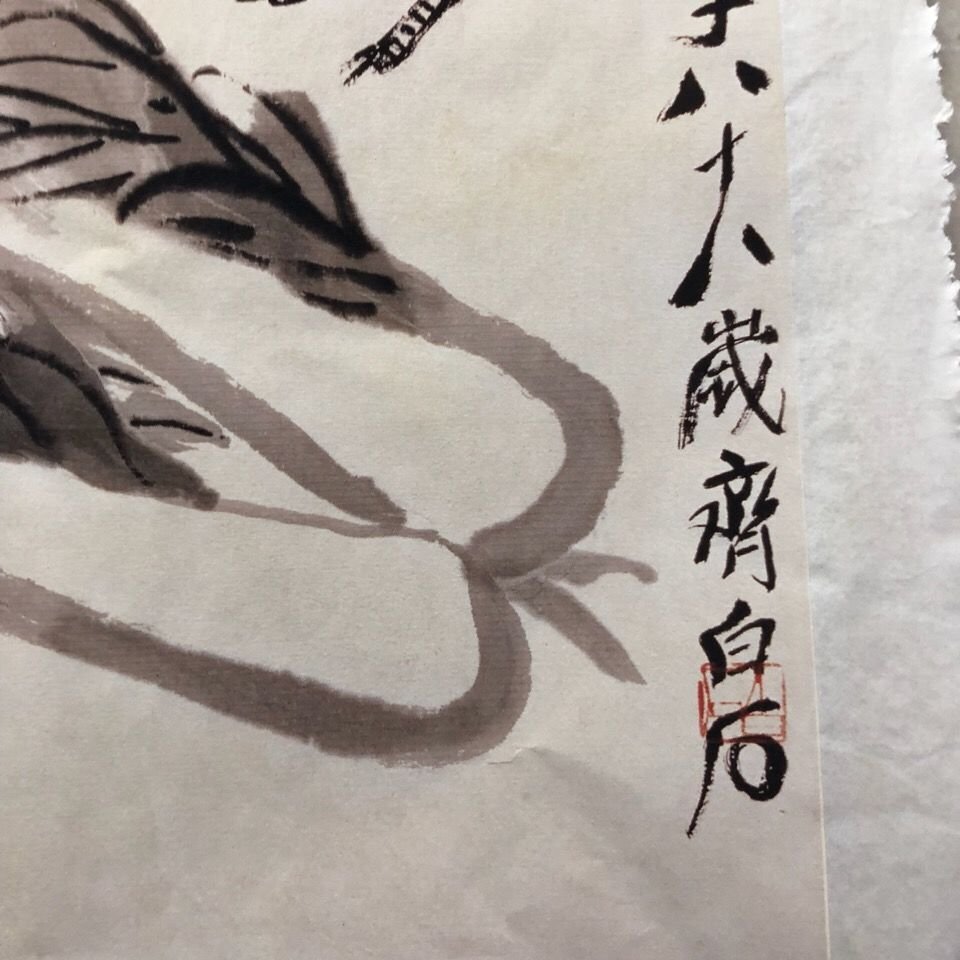 子八十八歲齊白石